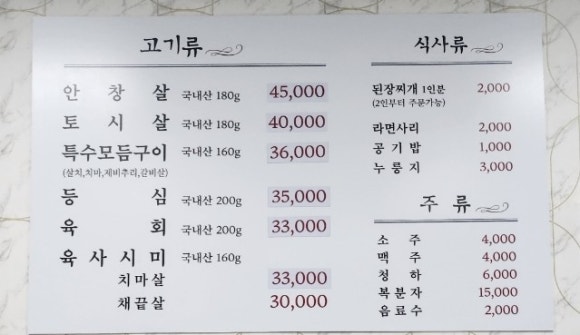 고기류
안창살 국내산 180g 45,000
토시살 국내산 180g 40,000
특수모듬구이 국내산 160g 36,000
(살치,치마,제비추리,갈비살)
등심 국내산 200g 35,000
육회 국내산 200g 33,000
육사시미 국내산 160g
치마살 33,000
채끝살 30,000
식사류
된장찌개 1인분 2,000
(2인부터 주문가능)
라면사리 2,000
공기밥 1,000
누룽지 3,000
주류
소주 4,000
맥주 4,000
청하 6,000
복분자 15,000
음료수 2,000